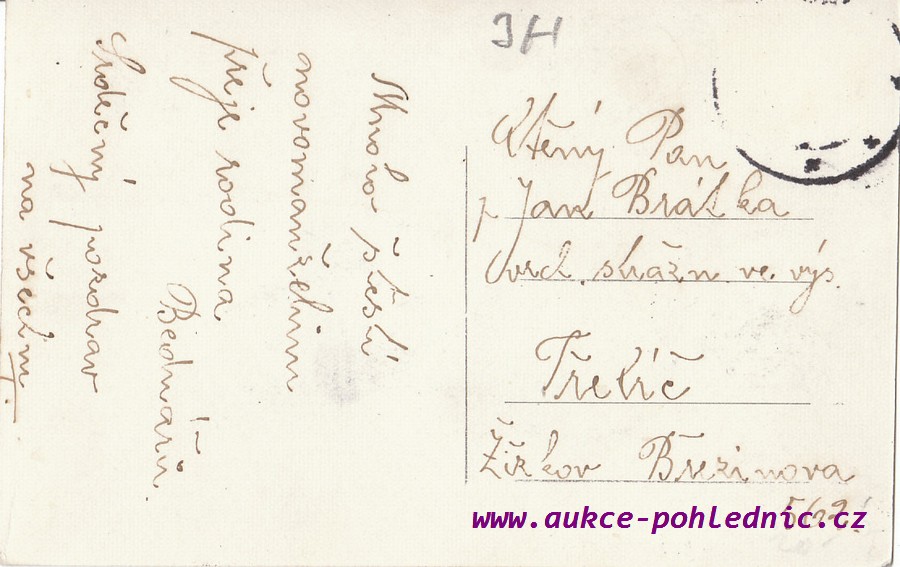 Mnoho štěstí
novomanželům
přeje rodina
Bednářů.
Srdečný pozdrav
na všechny.
JH
Ctěný Pan
p Jan Brátka
vrch. strážn. ve. výs.
Třebíč
Žižkov Březinova
www.aukce-pohlednic.cz